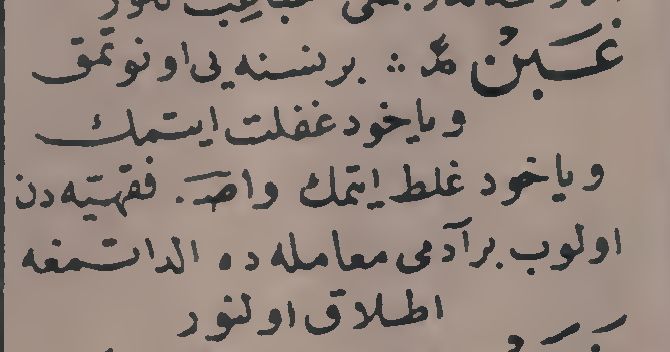 غَبنْ مد ∴ برنسنه یی اونوتمق
ویاخود غفلت ایتمك
ویاخود غلط ایتمك واصـ. فقهیه دن
اولوب برآدمی معامله ده الداتمغه
اطلاق اولنور